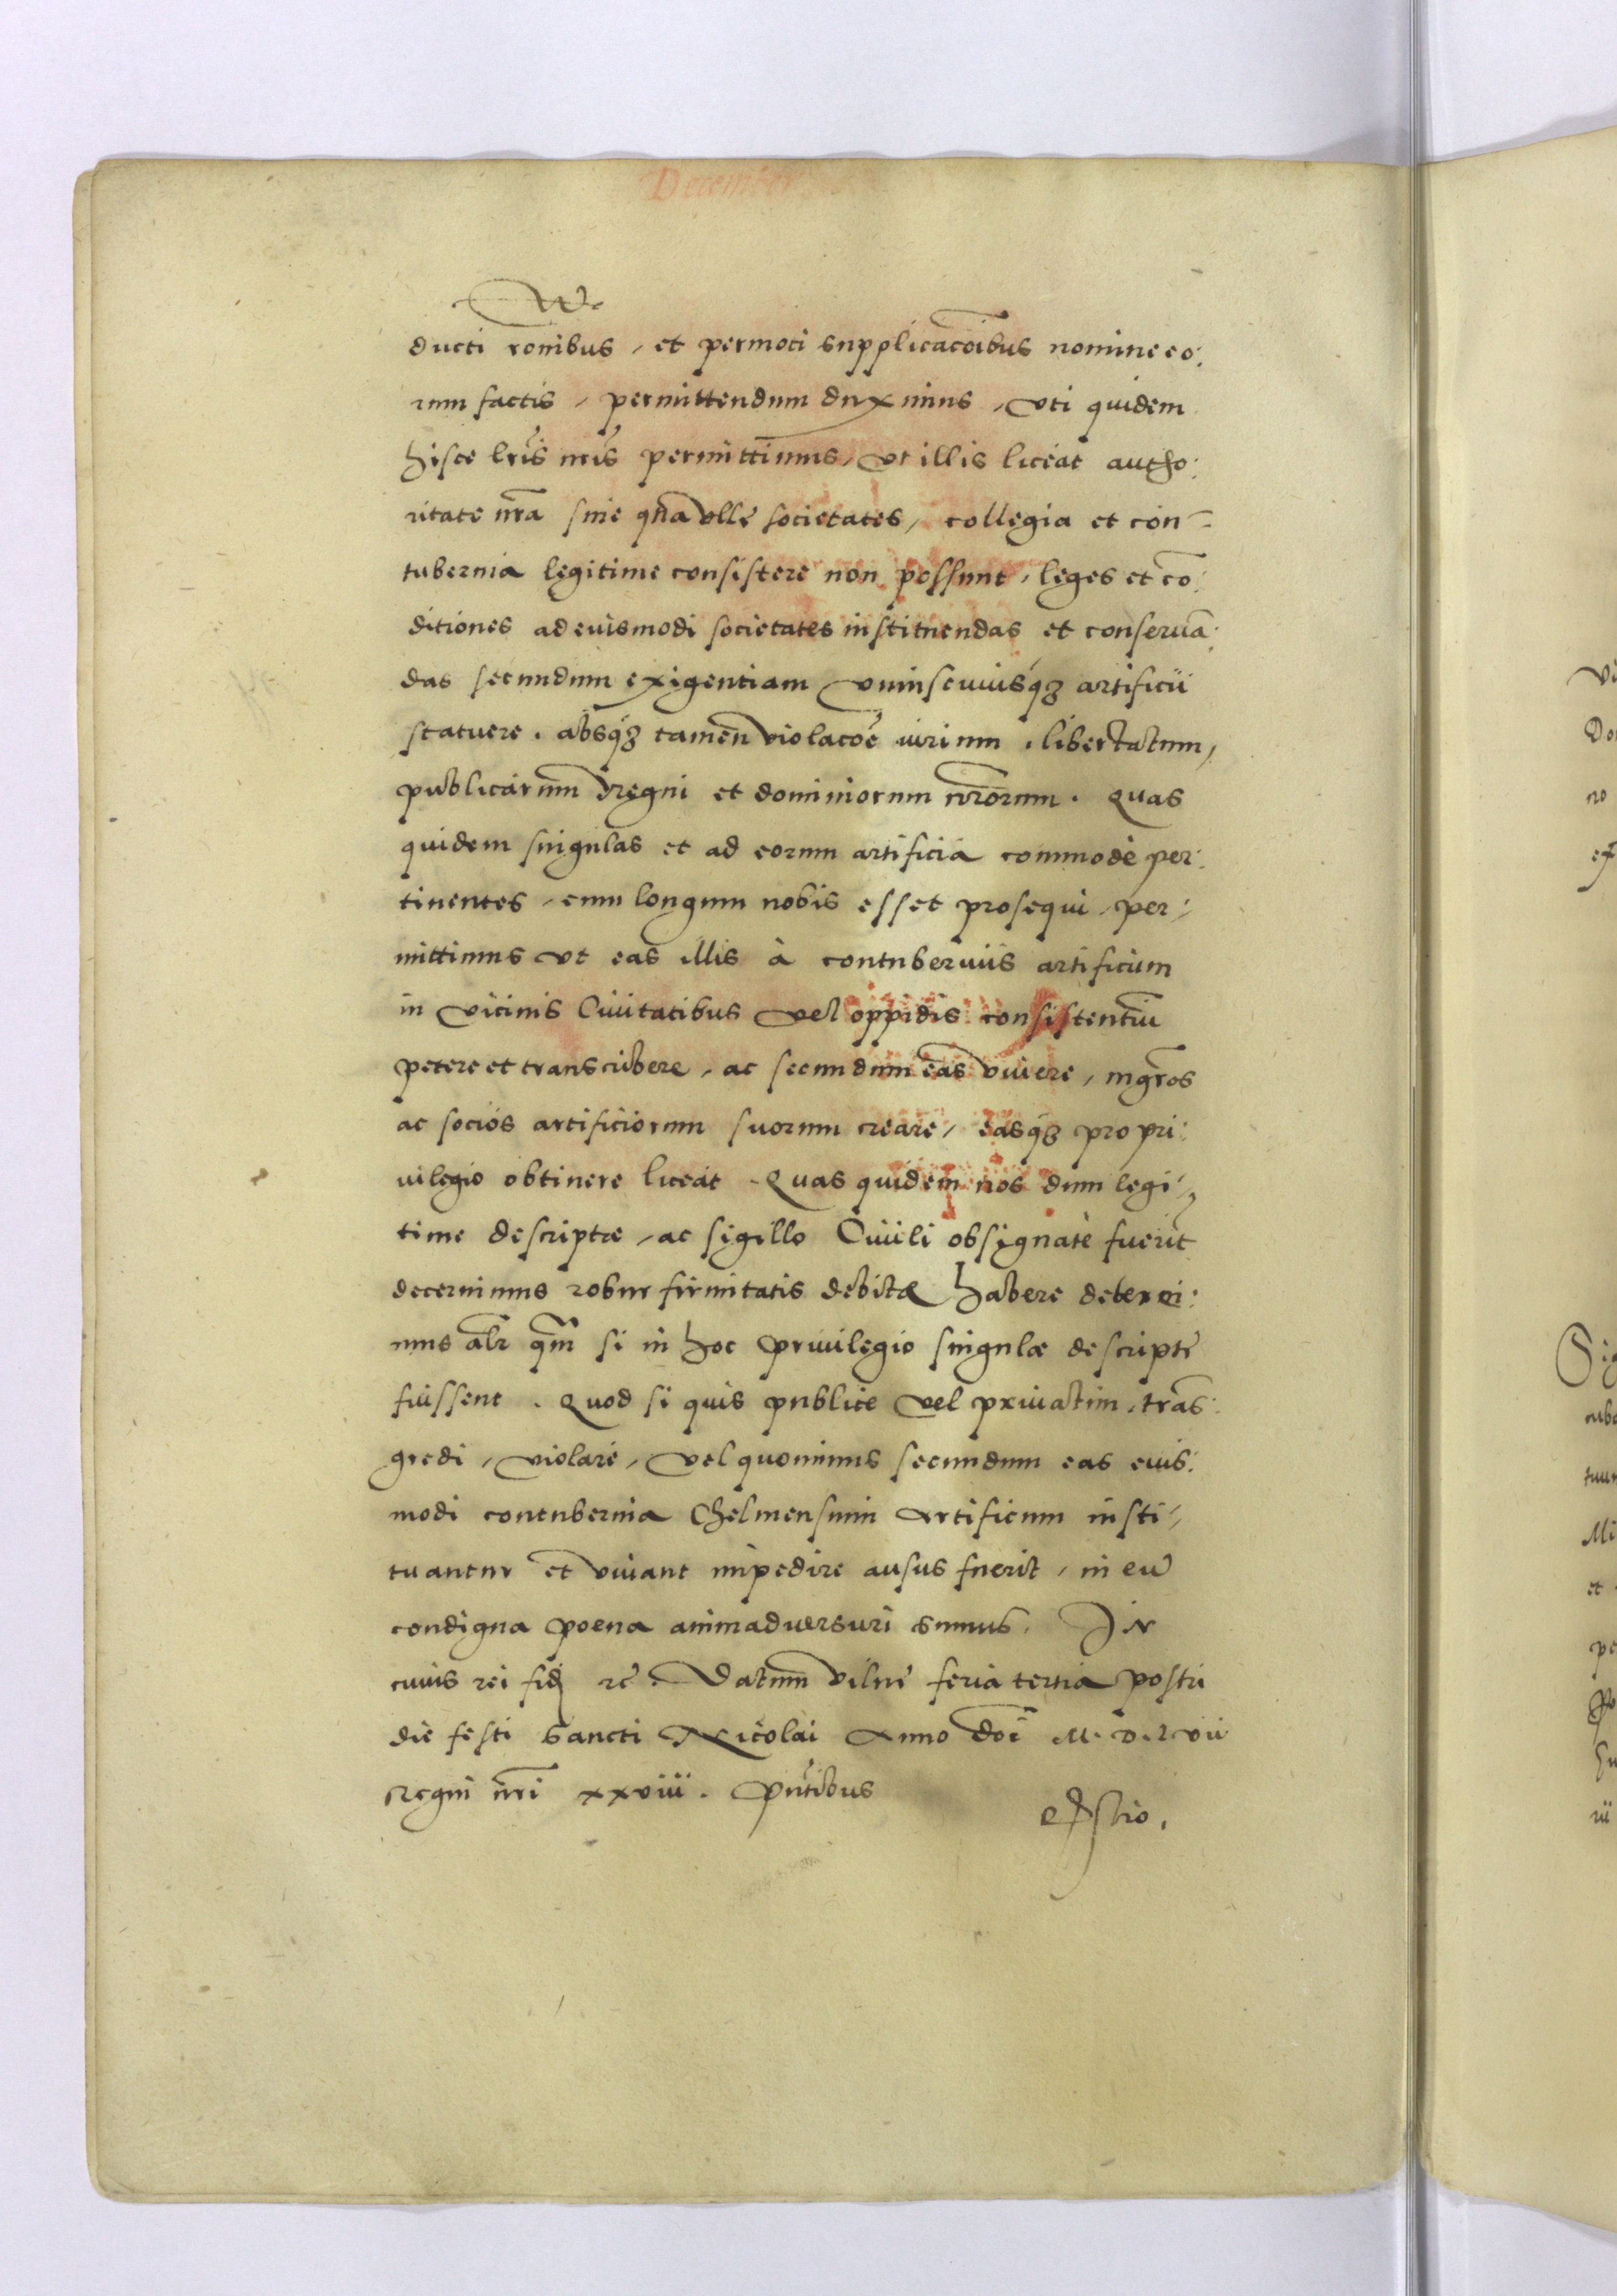 December
ducti ronibus, et permoti supplicacoibus nomine eo:
rum factis, permittendum duximus, uti quidem
hisce lris nris permittimus, ut illis liceat autho:
ritate nra sine qua ulle societates, collegia et con-
tubernia legitime consistere non possunt, leges et co:
ditiones ad euismodi societates instituendas et conserua:
das secundum exigentiam uniuscuiusq3 artificii
statuere. absq3 tamen violacoe iurium, libertatum,
publicarum regni et dominiorum nrorum. Quas
quidem singulas et ad eorum artificia commode per:
tinentes, cum longum nobis esset prosequi, per:
mittimus ut eas illis à contuberniis artificum
in vicinis Ciuitatibus vel oppidis consistentiu
petere et transcribere, ac secundum eas viuere, mgros
ac socios artificiorum suorum creare, easq3 pro pri:
uilegio obtinere liceat. Quas quidem nos dum legi:
time descriptæ, ac sigillo Ciuili obsignate fuerit
decernimus robur firmitatis debitæ habere deberei:
mus alr qm si in hoc priuilegio singulæ descripte
fuissent. Quod si quis publice vel priuatim, tras:
gredi, violare, vel quominus secundum eas euis:
modi contubernia Chelmensium artificum insti:
tuantur et viuant impedire ausus fuerit, in eu
condigna poena animaduersuri sumus. In
cuius rei fid rc. Datum Vilne feria tertia postri
die festi Sancti Nicolai Anno doi M.D.Lvii
Regni nri xxviii. Pntibus